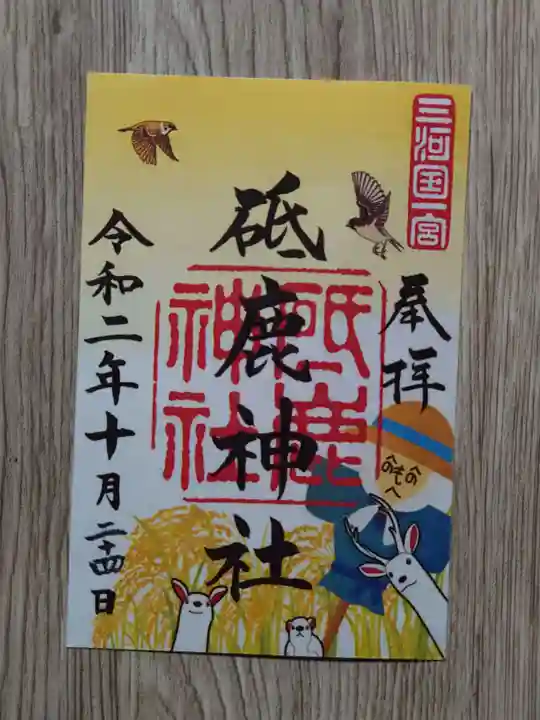 三河国一宮
奉拝
砥鹿神社
砥鹿神社
令和二年十月二十四日
へのへの